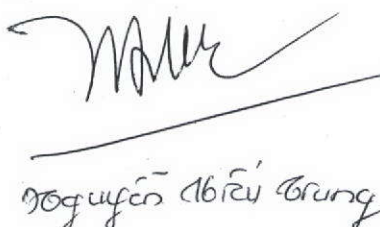 Nguyễn Hiếu Trung